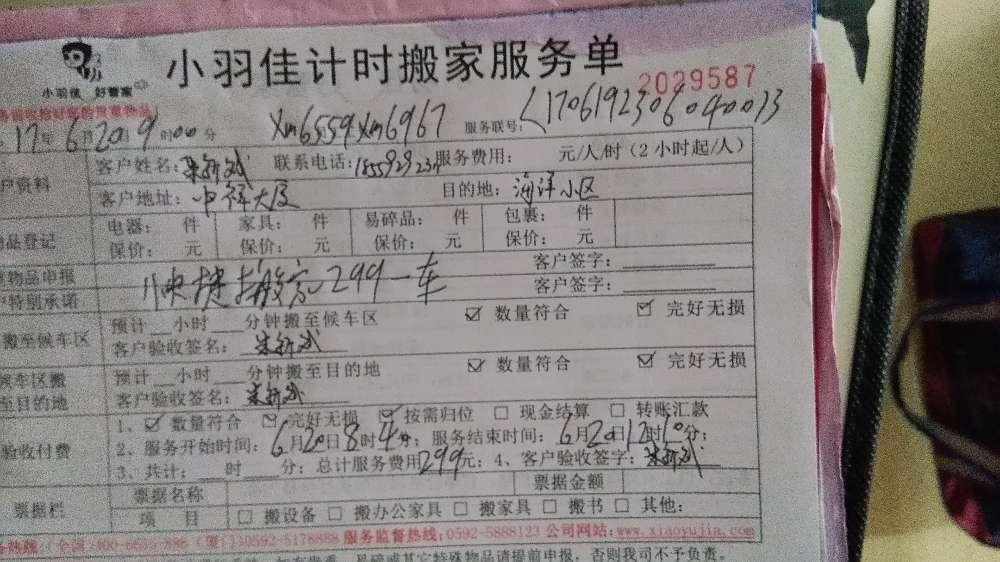 小羽佳计时搬家服务单
小羽佳 好管家
2029587
17年6月20日9时00分 Xm6559 Xm6967 服务联号: 1706192306040013
户资料 客户姓名: 联系电话: 服务费用: 元/人/时(2小时起/人)
客户地址: 中祥大厦 目的地: 海洋小区
品登记 电器: 件 家具: 件 易碎品: 件 包裹: 件
保价: 元 保价: 元 保价: 元 保价: 元
物品申报 小快捷搬家 299一车 客户签字:
特别承诺 客户签字:
搬至候车区 预计 小时 分钟搬至候车区 ☑ 数量符合 ☑ 完好无损
客户验收签名:
候车区搬至目的地 预计 小时 分钟搬至目的地 ☑ 数量符合 ☑ 完好无损
客户验收签名:
验收付费 1、☑ 数量符合 ☑ 完好无损 ☑ 按需归位 □ 现金结算 □ 转账汇款
2、服务开始时间: 6月20日8时4分; 服务结束时间: 6月20日12时10分;
3、共计: 时 分; 总计服务费用299元; 4、客户验收签字:
票据栏 票据名称 票据金额
项 目 □ 搬设备 □ 搬办公家具 □ 搬家具 □ 搬书 □ 其他:
务热线: (厦门)0592-5178888 服务监督热线: 0592-5888123 公司网站: www.xiaoyujia.com
易碎或其它特殊物品请提前申报, 否则我司不予负责。